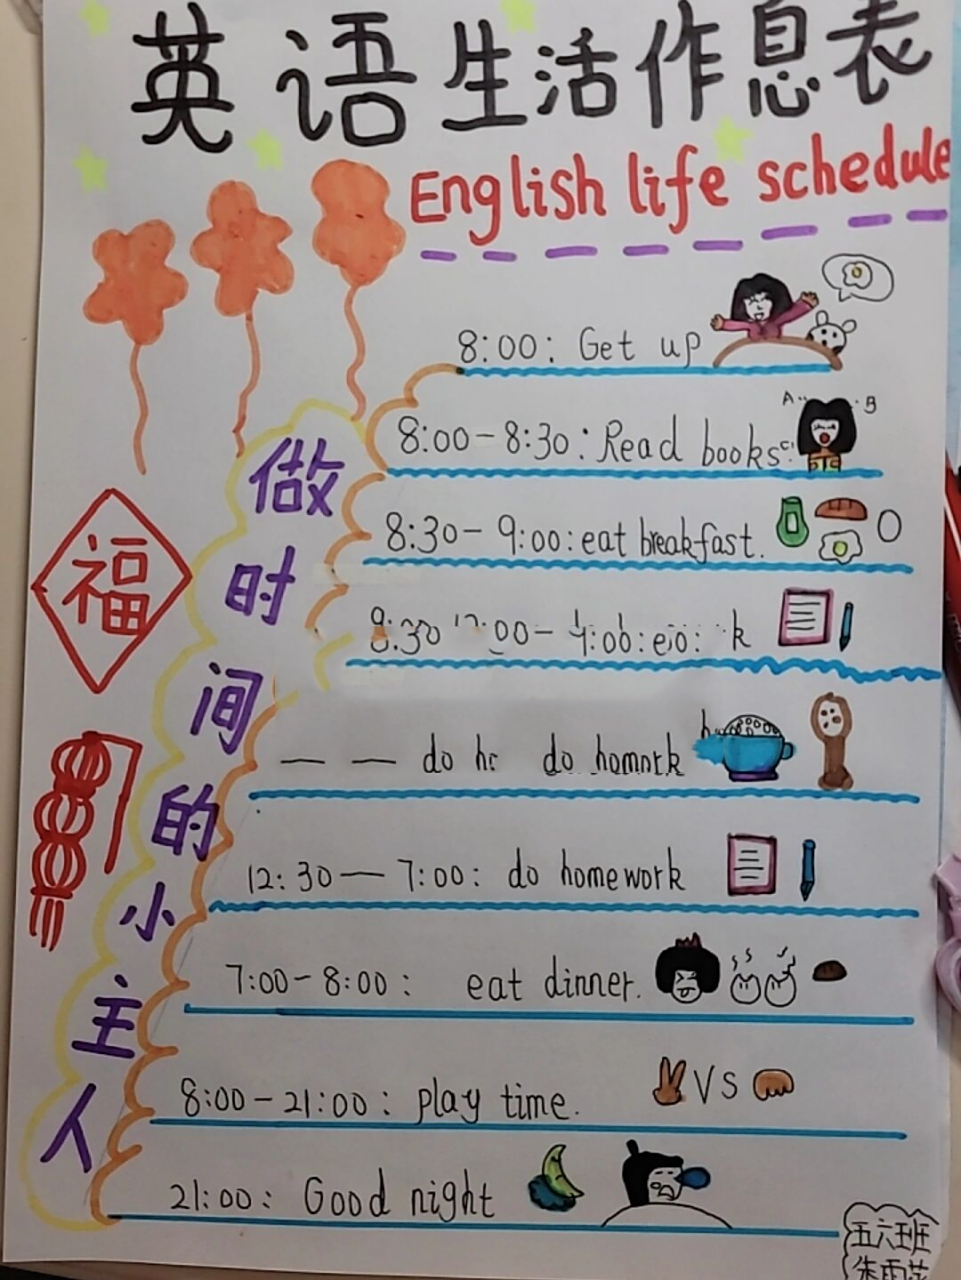 英语生活作息表
English life schedule
8:00: Get up
A B
8:00-8:30: Read books
8:30-9:00: eat breakfast.
做时间的小主人
福
— — do do
12:30—7:00: do homework
7:00-8:00: eat dinner.
8:00-21:00: play time.
VS
21:00: Good night
五六班